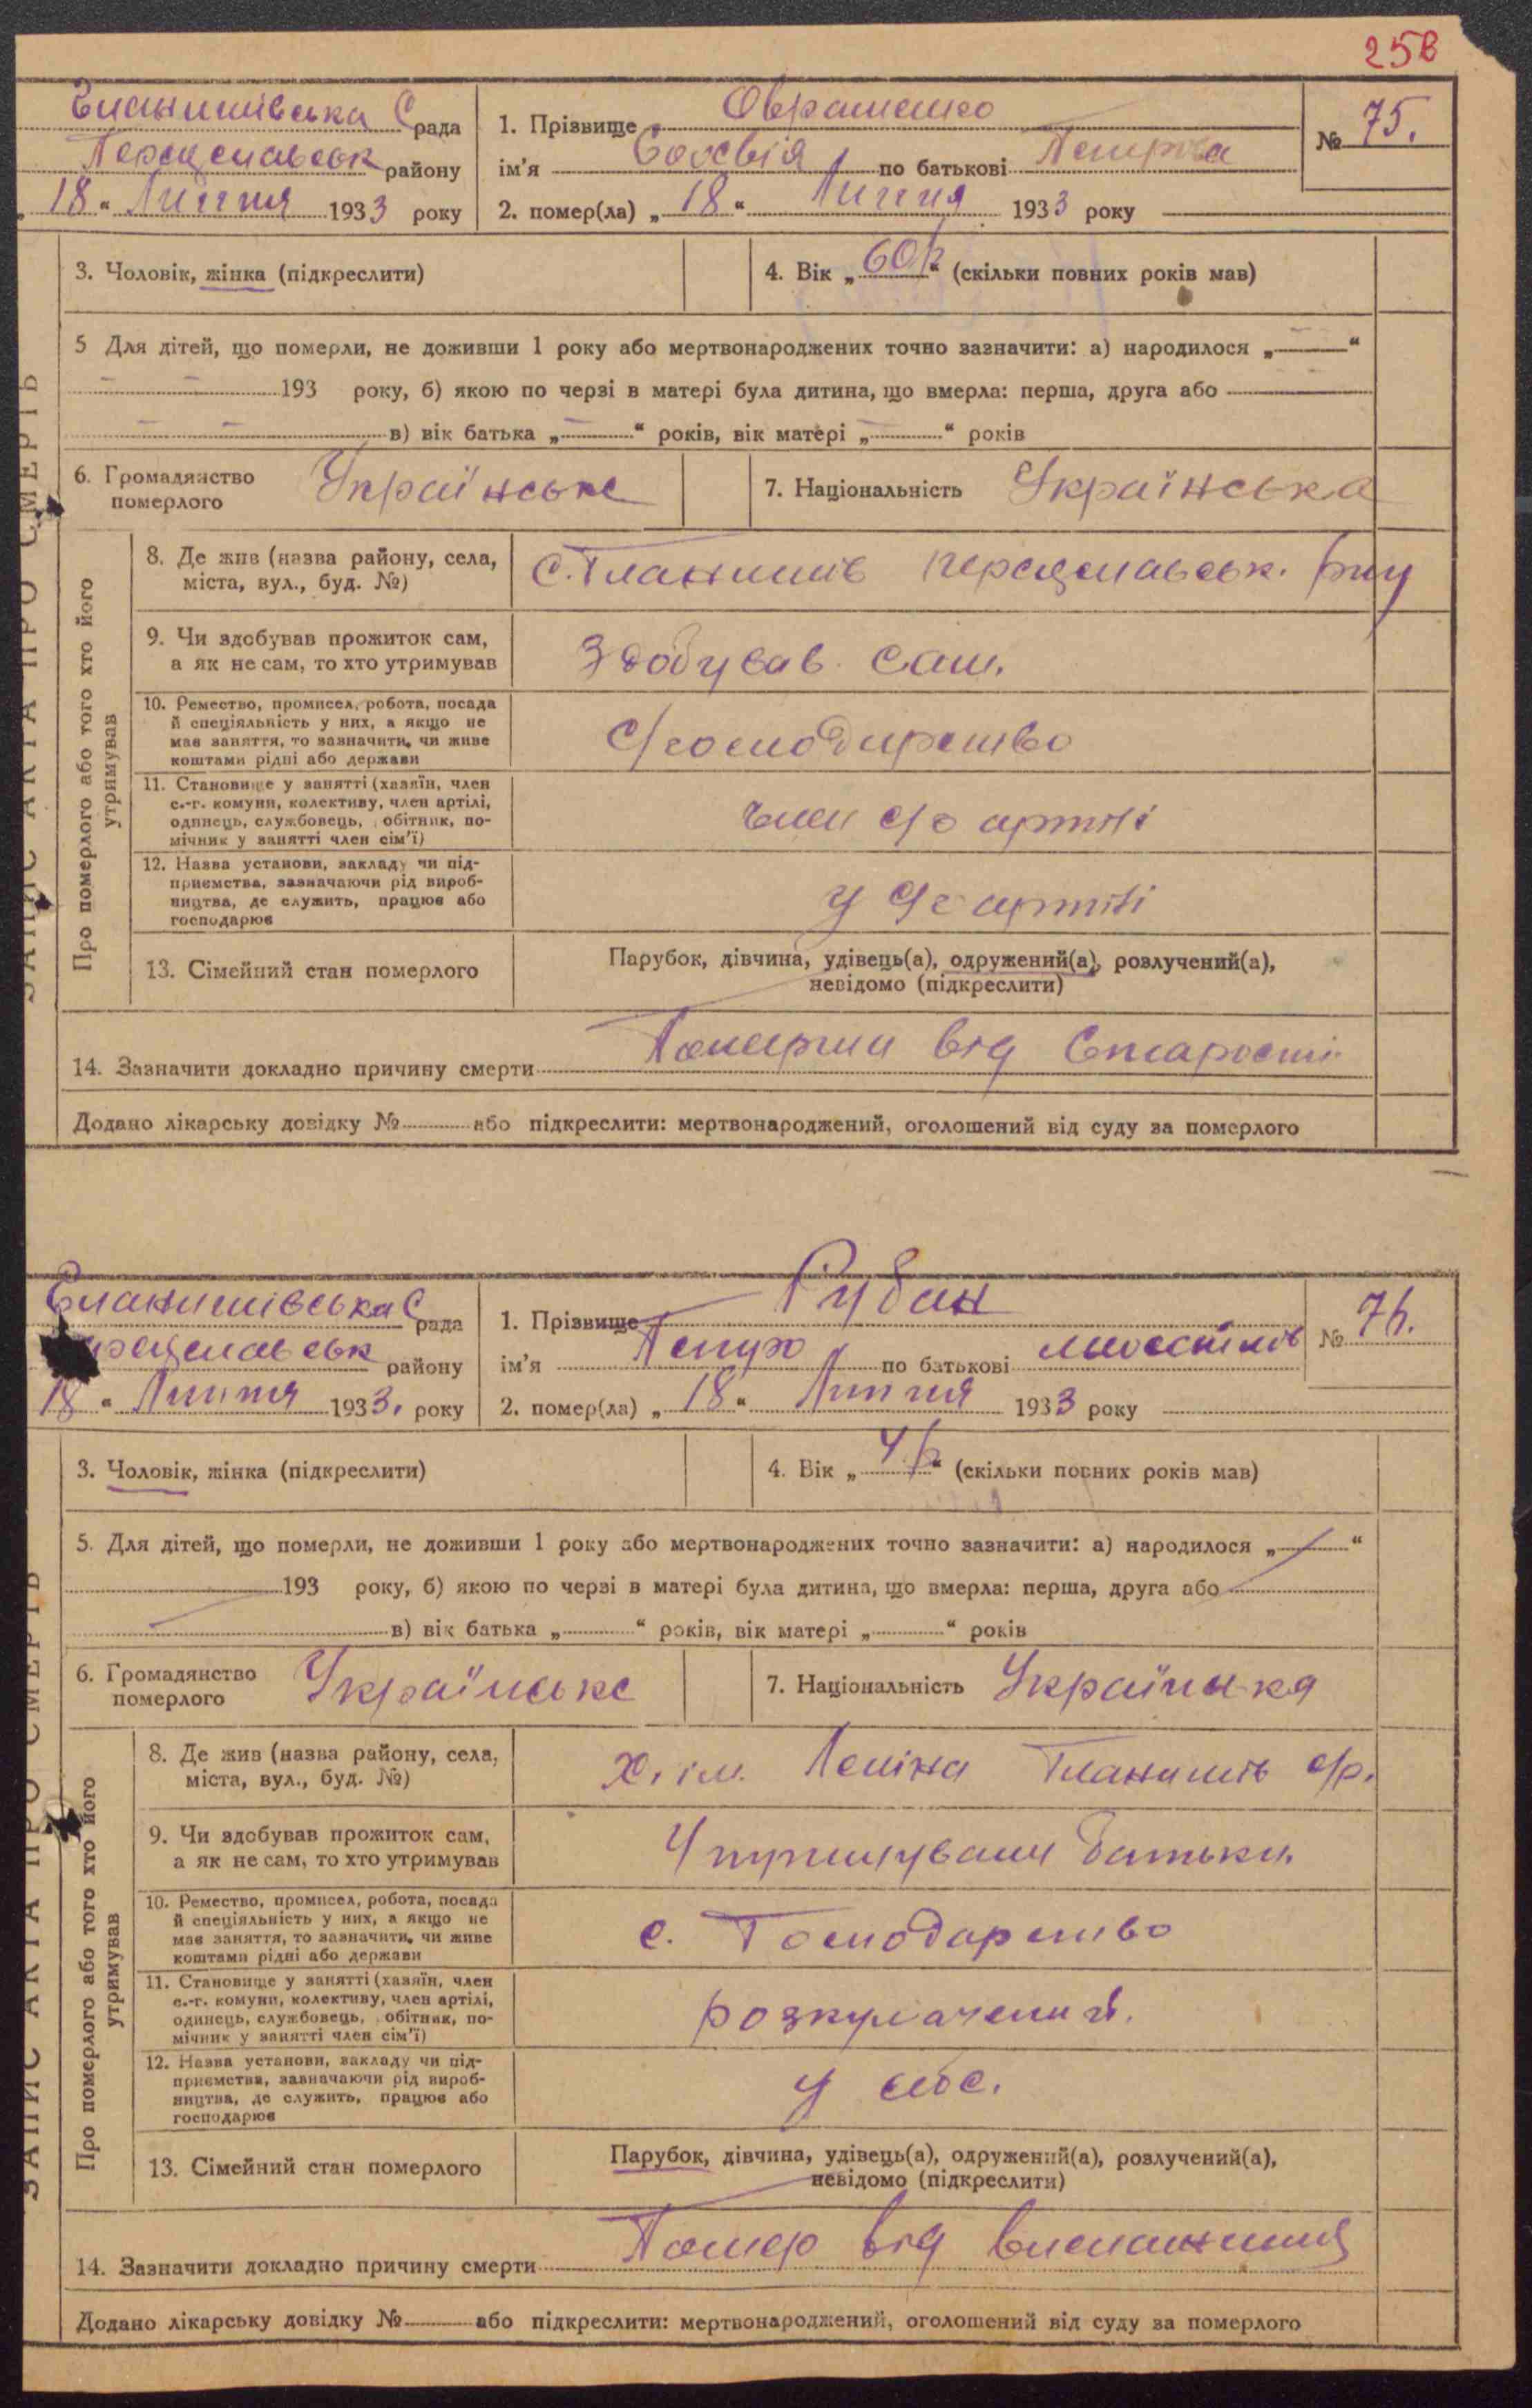 25в
Гланишівська С рада
Переяславськ району
„ 18 “ Липня 1933 року
1. Прізвище
ім'я по батькові Петрова
№ 75.
2. помер(ла) „ 18 “ Липня 1933 року
3. Чоловік, жінка (підкреслити)
4. Вік „ 60 р “ (скільки повних років мав)
5 Для дітей, що померли, не доживши 1 року або мертвонароджених точно зазначити: а) народилося „ — “
193 року, б) якою по черзі в матері була дитина, що вмерла: перша, друга або
в) вік батька „ “ років, вік матері „ “ років
6. Громадянство
померлого
Українське
7. Національність Українська
ЗАПИС АКТА ПРО СМЕРТЬ
Про померлого або того хто його
утримував
8. Де жив (назва району, села,
міста, вул., буд. №)
С. Гланишів Переяславськ. р-ну
9. Чи здобував прожиток сам,
а як не сам, то хто утримував
Здобував сам.
10. Ремество, промисел, робота, посада
й спеціяльність у них, а якщо не
має заняття, то зазначити, чи живе
коштами рідні або держави
С/господарство
11. Становище у занятті (хазяїн, член
с.-г. комуни, колективу, член артілі,
одинець, службовець, обітник, по-
мічник у занятті член сім'ї)
член с/г артілі
12. Назва установи, закладу чи під-
приємства, зазначаючи рід вироб-
ництва, де служить, працює або
господарює
у с/г артілі
13. Сімейний стан померлого
Парубок, дівчина, удівець(а), одружений(а), розлучений(а),
невідомо (підкреслити)
14. Зазначити докладно причину смерти Померши від Старости
Додано лікарську довідку № або підкреслити: мертвонароджений, оголошений від суду за померлого
Гланишівська С рада
району
18 “ Липня 1933. року
1. Прізвище Рубан
ім'я Петро по батькові
№ 76.
2. помер(ла) „ 18 “ Липня 1933 року
3. Чоловік, жінка (підкреслити)
4. Вік „ 4 р “ (скільки повних років мав)
5. Для дітей, що померли, не доживши 1 року або мертвонароджених точно зазначити: а) народилося „ “
193 року, б) якою по черзі в матері була дитина, що вмерла: перша, друга або
в) вік батька „ “ років, вік матері „ “ років
6. Громадянство
померлого
Українське
7. Національність Українська
ЗАПИС АКТА ПРО СМЕРТЬ
Про померлого або того хто його
утримував
8. Де жив (назва району, села,
міста, вул., буд. №)
Х. ім. Леніна Гланишів с/р.
9. Чи здобував прожиток сам,
а як не сам, то хто утримував
Утримували батьки.
10. Ремество, промисел, робота, посада
й спеціяльність у них, а якщо не
має заняття, то зазначити, чи живе
коштами рідні або держави
с. Господарство
11. Становище у занятті (хазяїн, член
с.-г. комуни, колективу, член артілі,
одинець, службовець, обітник, по-
мічник у занятті член сім'ї)
розкулачений.
12. Назва установи, закладу чи під-
приємства, зазначаючи рід вироб-
ництва, де служить, працює або
господарює
у себе.
13. Сімейний стан померлого
Парубок, дівчина, удівець(а), одружений(а), розлучений(а),
невідомо (підкреслити)
14. Зазначити докладно причину смерти Помер від виснаження
Додано лікарську довідку № або підкреслити: мертвонароджений, оголошений від суду за померлого